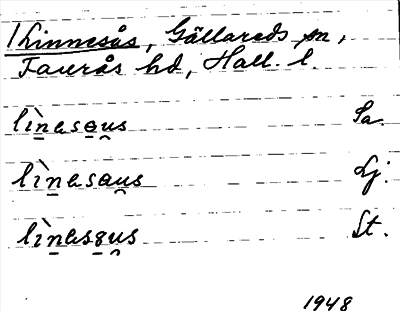 1 Linnesås, Gällareds sn,
Faurås hd, Hall. l.
lìnesaus Sa.
lìnesaus Lj.
lìnesꞛus St.
1948